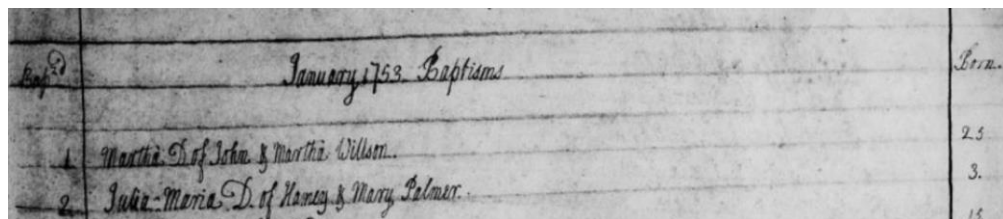 Bap.d January 1753. Baptisms Born.
1 Martha D. of John & Martha Willson. 23
2 Julia-Maria D. of Harvey & Mary Palmer. 3.
15